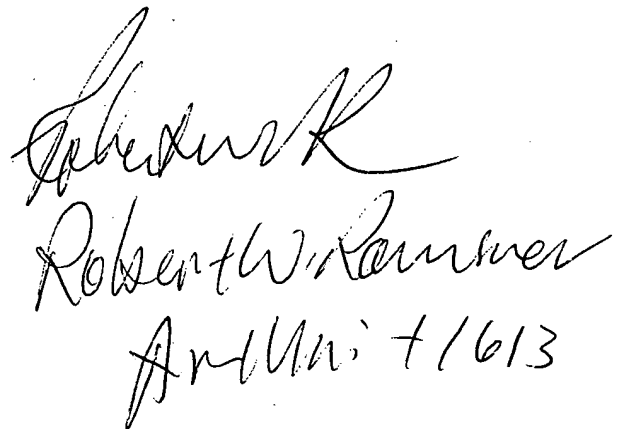 Robert W. Rammer
Art Unit 1613